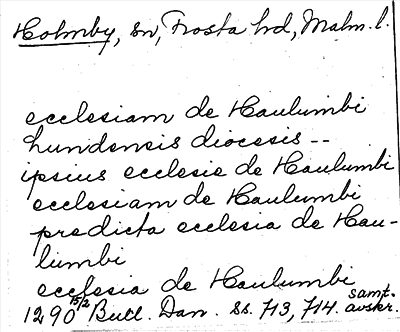 Holmby, sn, Frosta hd, Malm. l.
ecclesiam de Haulumbi
lundensis diocesis --
ipsius ecclesie de Haulumbi
ecclesiam de Haulumbi
predicta ecclesia de Hau-
lumbi
ecclesia de Haulumbi
1290 15/2 Bull. Dan. ss. 713, 714. samt. avskr.